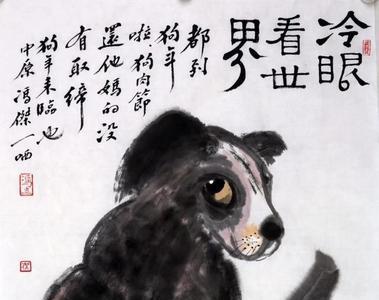 冷眼
看世
界
都到
狗年
啦，狗肉節
還他媽的没
有取締
狗年来臨也
中原馮傑一哂